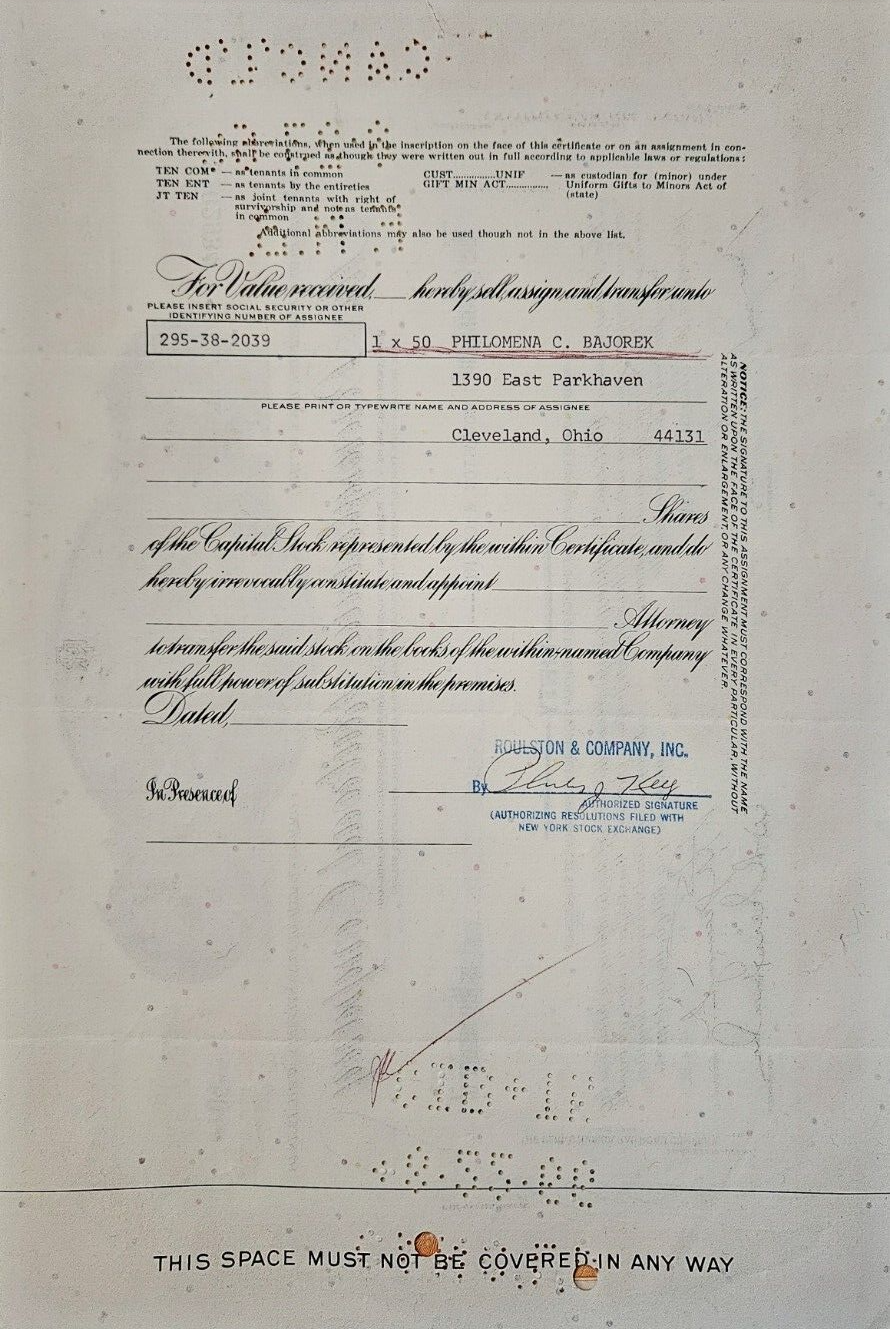 The following abbreviations, when used in the inscription on the face of this certificate or on an assignment in con-
nection therewith, shall be construed as though they were written out in full according to applicable laws or regulations:
TEN COM — as tenants in common
TEN ENT — as tenants by the entireties
JT TEN — as joint tenants with right of
survivorship and not as tenants
in common
CUST..............UNIF — as custodian for (minor) under
GIFT MIN ACT............. Uniform Gifts to Minors Act of
(state)
Additional abbreviations may also be used though not in the above list.
For Value received, ___ hereby sell, assign and transfer unto
PLEASE INSERT SOCIAL SECURITY OR OTHER
IDENTIFYING NUMBER OF ASSIGNEE
295-38-2039 1 x 50 PHILOMENA C. BAJOREK
1390 East Parkhaven
PLEASE PRINT OR TYPEWRITE NAME AND ADDRESS OF ASSIGNEE
Cleveland, Ohio 44131
Shares
of the Capital Stock represented by the within Certificate, and do
hereby irrevocably constitute and appoint
Attorney
to transfer the said stock on the books of the within-named Company
with full power of substitution in the premises.
Dated,
ROULSTON & COMPANY, INC.
In Presence of
By
AUTHORIZED SIGNATURE
(AUTHORIZING RESOLUTIONS FILED WITH
NEW YORK STOCK EXCHANGE)
NOTICE: THE SIGNATURE TO THIS ASSIGNMENT MUST CORRESPOND WITH THE NAME
AS WRITTEN UPON THE FACE OF THE CERTIFICATE IN EVERY PARTICULAR, WITHOUT
ALTERATION OR ENLARGEMENT, OR ANY CHANGE WHATEVER.
THIS SPACE MUST NOT BE COVERED IN ANY WAY